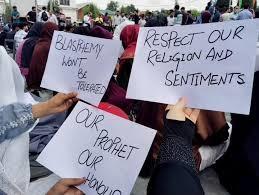 BLASPHEMY
WON'T
BE
TOLERATED
RESPECT OUR
RELIGION AND
SENTIMENTS
OUR
PROPHET
OUR
HONOUR